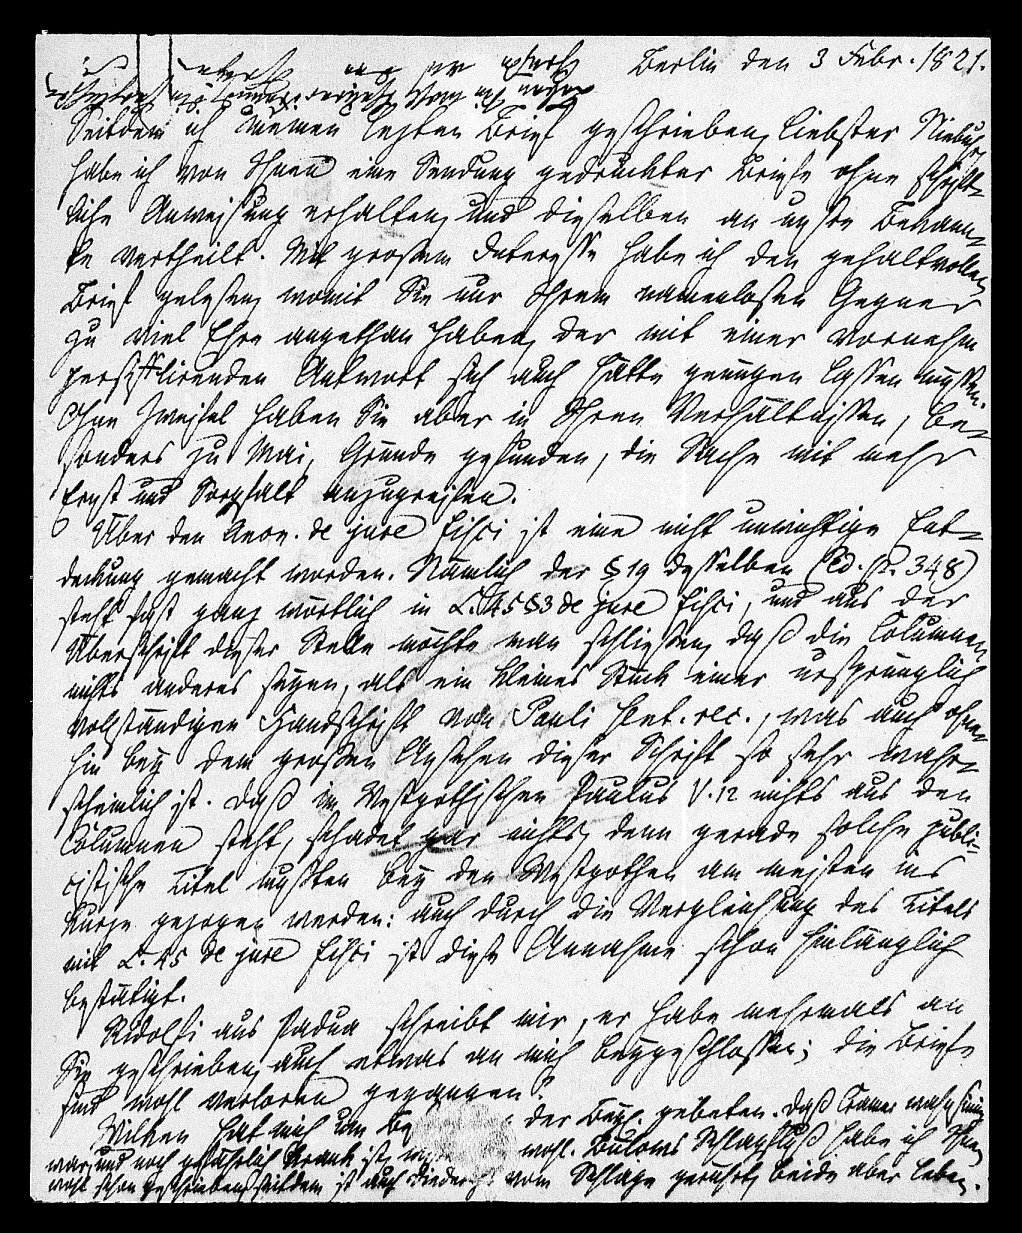 Berlin den 3 Febr. 1821.
Seitdem ich meinen lezten Brief geschrieben, liebster Niebuhr
habe ich von Ihnen eine Sendung gedruckter Briefe ohne schrift-
liche Anweisung erhalten, und dieselben an unsre Bekann-
te vertheilt. Mit großem Interesse habe ich den gehaltvollen
Brief gelesen, womit Sie nur Ihrem namenlosen Gegner
zu viel Ehre angethan haben, der mit einer vornehm
persifflirenden Antwort sich auch hätte genügen lassen müssen.
Ohne Zweifel haben Sie aber in Ihren Verhältnissen, be-
sonders zu Mai, Gründe gefunden, die Sache mit mehr
Ernst und Sorgfalt anzugreifen.
Über den Anon. de jure fisci ist eine nicht unwichtige Ent-
deckung gemacht worden. Nämlich der § 19 desselben (Ed. p. 348)
steht fast ganz wörtlich in L. 45 § 3 de jure fisci, und aus der
Überschrift dieser Stelle möchte man schließen, daß die Columnen
nichts anderes seyen, als ein kleines Stück einer ursprünglich
vollständigen Handschrift von Pauli sent. rec., was auch ohne-
hin bey dem großen Ansehen dieser Schrift so sehr wahr-
scheinlich ist. Daß im Westgothischen Paulus V. 12 nichts aus den
Columnen steht, schadet gar nichts, denn gerade solche publi-
cistische Titel mußten bey den Westgothen am meisten ins
Kurze gezogen werden: auch durch die Vergleichung des Titels
mit L. 45 de jure fisci ist diese Annahme schon hinlänglich
bestätigt.
Ridolfi aus Padua schreibt mir, er habe mehrmals an
Sie geschrieben, auch etwas an mich beygeschlossen; die Briefe
sind wohl verloren gegangen?
Wilken hat mich um der Beyl. gebeten. Daß Cramer wahnsinnig
war, und noch gefährlich krank ist, wohl. Bülows Schlagfluß habe ich Ihnen
wohl schon geschrieben, seitdem ist auch vom Schlage gerührt, beide aber leben.